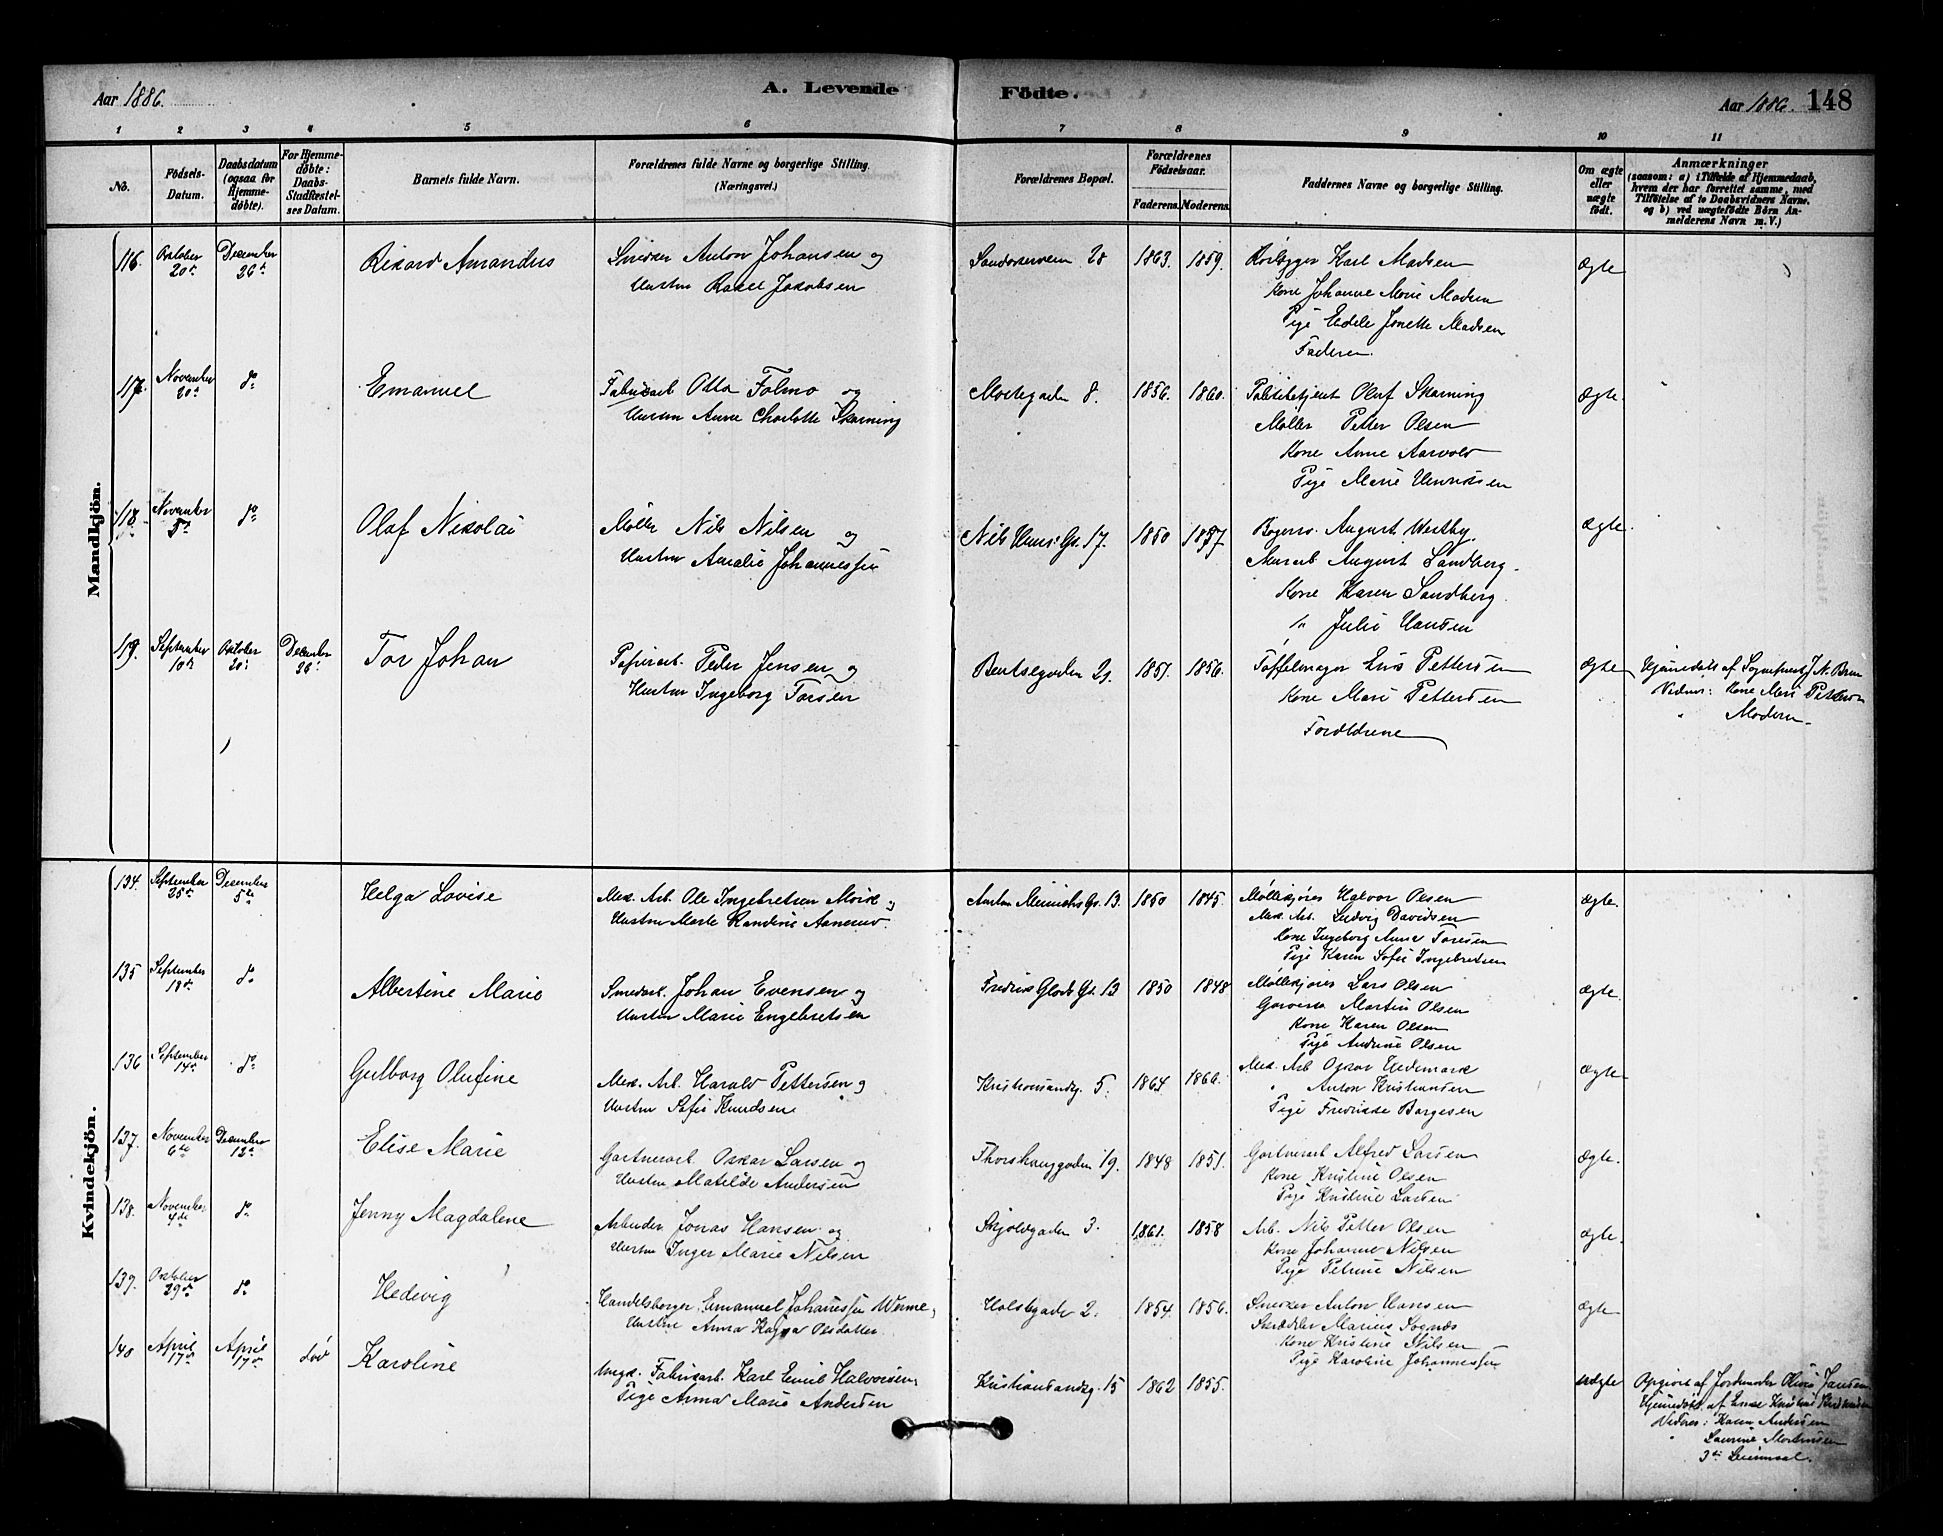 Aar 1886.
A. Levende Födte.
Aar 1886. 148
1 2 3 4 5 6 7 8 9 10 11
No.
Födsels-Datum.
Daabsdatum (ogsaa for Hjemme-döbte).
For Hjemme-döbte: Daabs-Stadfæstel-ses Datum.
Barnets fulde Navn.
Forældrenes fulde Navne og borgerlige Stilling.
(Næringsvei.)
Forældrenes Bopæl.
Forældrenes Födselsaar.
Faderens. Moderens.
Faddernes Navne og borgerlige Stilling.
Om ægte eller uægte födt.
Anmærkninger
(saasom: a) i Tilfælde af Hjemmedaab,
hvem der har forrettet samme, med
Tilföielse af to Daabsvidners Navne.
og b) ved uægtefödte Börn An-
melderens Navn m. V.)
Mandkjön.
116. Oktober December Rikard Amandus Snicker Anton Johansen og 28 1863. 1859. Karl Madsen ægte
20de 26de Hustru Rakel Jakobsen Kone Johanne Marie Madsen
Pige Jonette Madsen
Faderen.
117. November do Emanuel Fabrikarb. Otto Folmo og 8. 1856. 1860. Olaf Skarning ægte.
20de Hustru Anne Charlotte Skarning Møller Petter Olsen
Kone Anne Aarvold
Pige Marie Henriksen
118. November do Olaf Nikolai Møller Nils Nilsen og Nils Huus' Gd. 17. 1850 1857 August Westby. ægte.
5te Hustru Amalie Johannessen August Sandberg.
Kone Karen Sandberg.
" Julie Hansen
119. September Oktober December Tor Johan Papirarb. Peder Jensen og Bentsegaden 21. 1851. 1856. Tøffelmager Pettersen ægte Hjemmedøbt af Sognepræst J. N. Brun
10de 20de 26de Hustru Ingeborg Torsen Kone Mari Pettersen Vidner: Kone Mari Pettersen
Forældrene " Moderen.
Kvindekjön.
134. September December Helga Lovise Mek. Arb. Ole Ingebretsen og 13. 1850 1845. Møllekjører Halvor Olsen ægte.
25de 5te Hustru Marte Randine Aanerud. Mek. Arb. Ludvig Davidsen
Kone Ingeborg Anna Toresen
Pige Karen Sofie Ingebretsen
135 September do Albertine Marie Smedarb. Johan Evensen og 13 1850 1848 Møllekjører Lars Olsen ægte.
18de Hustru Marie Engebretsen Garver Martin Olsen
Kone Karen Olsen
Pige Andrine Olsen
136 September do Gulborg Olufine Mek. Arb. Harald Pettersen og Kristiansandg. 5. 1864 1866. Mek. Arb. Oskar Hedemark ægte
14de Hustru Sofie Knudsen " Anton Kristiansen
Pige Fredrikke Borgesen
137. November December Elise Marie Gartnerarb. Oskar Larsen og Thorshauggaden 19. 1848 1851. Gartnerarb. Alfred Larsen ægte.
6te 12te Hustru Matilde Andersen Kone Kristine Olsen
Pige Kristine Larsen
138. November do Jenny Magdalene Arbeider Jonas Hansen og Skjoldgaden 3. 1861. 1858 Arb. Nils Petter Olsen ægte.
4de Hustru Inger Marie Nilsen Kone Johanne Nilsen
Pige Petrine Nilsen
139. Oktober do Hedvig Handelsborger Emanuel Johannessen Holstsgade 2. 1854 1856. Snecker Anton Hansen ægte
29de Hustru Anna Olsdatter Skrædder Marius Sognæs
Kone Kristine Nilsen
Pige Karoline Johannessen
140 April April død Karoline Ungk. Fabrikarb. Karl Emil Halvorsen Kristiansandg. 15 1862 1855. uægte Opgivet af Jordemoder Jansen
17de 17de Pige Anna Marie Andersen Hjemmedøbt af Enke Kristine
Vidner: Karen Andersen
" Laurine Mortensen
3die Leiermaal.